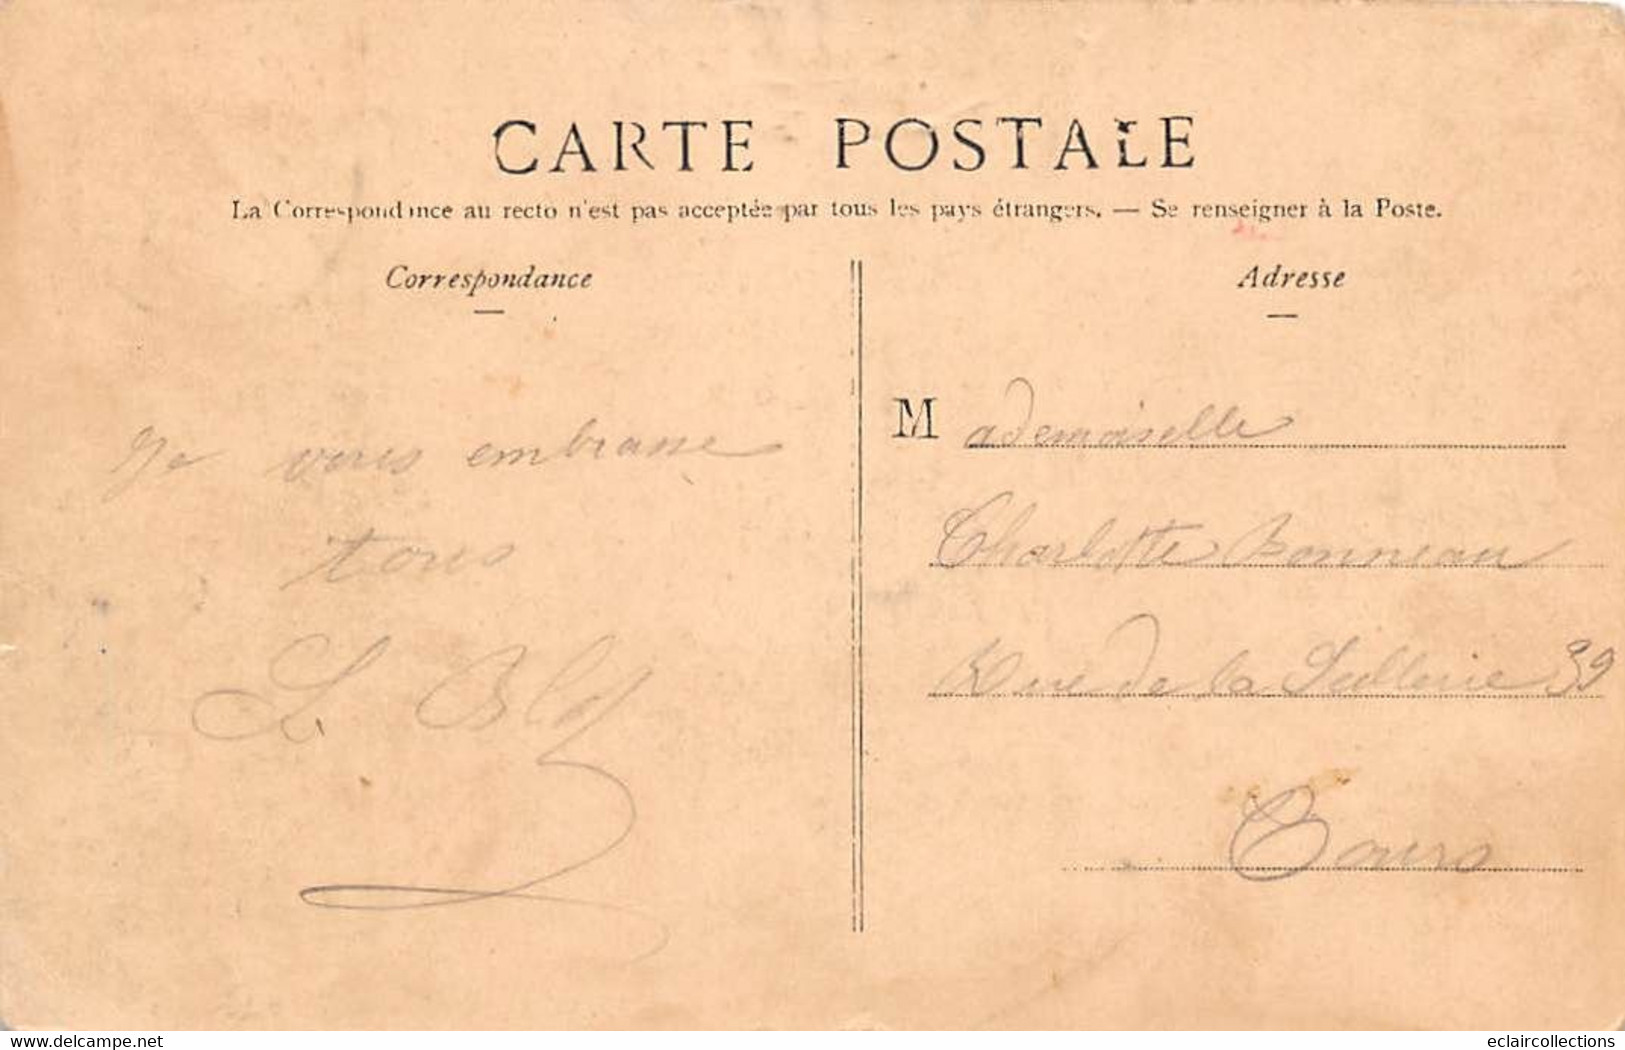 CARTE POSTALE
La Correspondance au recto n'est pas acceptée par tous les pays étrangers. — Se renseigner à la Poste.
Correspondance
Je vous embrasse
tous
Adresse
Mademoiselle
Charlotte Bonneau
Rue de la 39
Tours
www.delcampe.net
eclaircollections